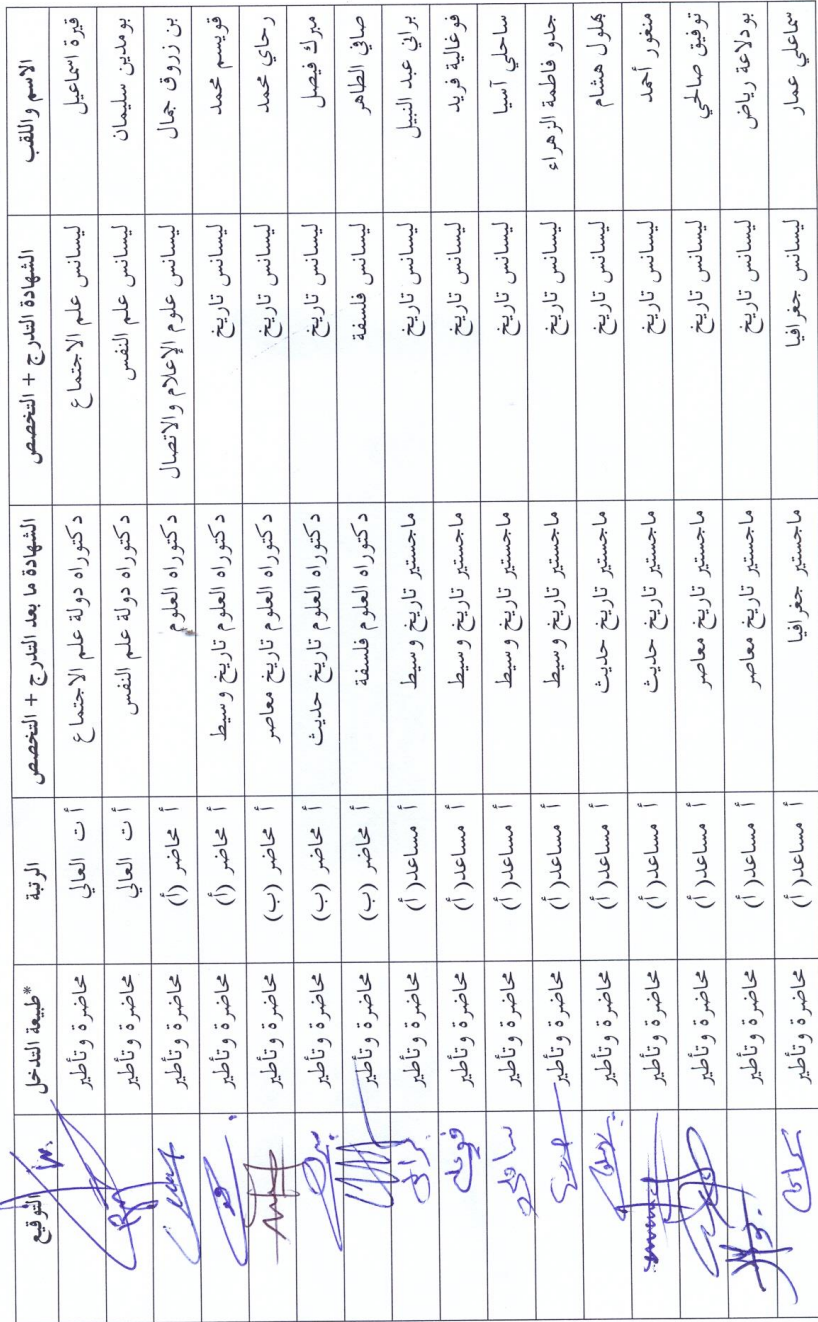 الاسم واللقب الشهادة التدرج + التخصص الشهادة ما بعد التدرج + التخصص الرتبة *طبيعة التدخل التوقيع
قيرة اسماعيل ليسانس علم الاجتماع دكتوراه دولة علم الاجتماع أ ت العالي محاضرة وتأطير
بومدين سليمان ليسانس علم النفس دكتوراه دولة علم النفس أ ت العالي محاضرة وتأطير
بن زروق جمال ليسانس علوم الإعلام والاتصال دكتوراه العلوم أ محاضر (أ) محاضرة وتأطير
قويسم محمد ليسانس تاريخ دكتوراه العلوم تاريخ وسيط أ محاضر (أ) محاضرة وتأطير
رحاي محمد ليسانس تاريخ دكتوراه العلوم تاريخ معاصر أ محاضر (ب) محاضرة وتأطير
مبرك فيصل ليسانس تاريخ دكتوراه العلوم تاريخ حديث أ محاضر (ب) محاضرة وتأطير
صافي الطاهر ليسانس فلسفة دكتوراه العلوم فلسفة أ محاضر (ب) محاضرة وتأطير
براني عبد النبيل ليسانس تاريخ ماجستير تاريخ وسيط أ مساعد(أ) محاضرة وتأطير
فوغالية فريد ليسانس تاريخ ماجستير تاريخ وسيط أ مساعد(أ) محاضرة وتأطير
ساحلي آسيا ليسانس تاريخ ماجستير تاريخ وسيط أ مساعد(أ) محاضرة وتأطير
جدو فاطمة الزهراء ليسانس تاريخ ماجستير تاريخ وسيط أ مساعد(أ) محاضرة وتأطير
بهلول هشام ليسانس تاريخ ماجستير تاريخ حديث أ مساعد(أ) محاضرة وتأطير
منغور أحمد ليسانس تاريخ ماجستير تاريخ حديث أ مساعد(أ) محاضرة وتأطير
توفيق صالحي ليسانس تاريخ ماجستير تاريخ معاصر أ مساعد(أ) محاضرة وتأطير
بودلاعة رياض ليسانس تاريخ ماجستير تاريخ معاصر أ مساعد(أ) محاضرة وتأطير
سماعلي عمار ليسانس جغرافيا ماجستير جغرافيا أ مساعد(أ) محاضرة وتأطير